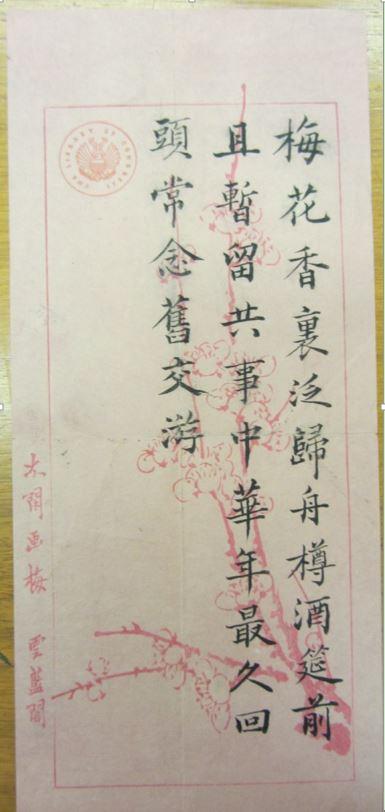 梅花香裏泛歸舟樽酒筵前
且暫留共事中華年最久回
頭常念舊交游
畫梅
THE LIBRARY OF CONGRESS